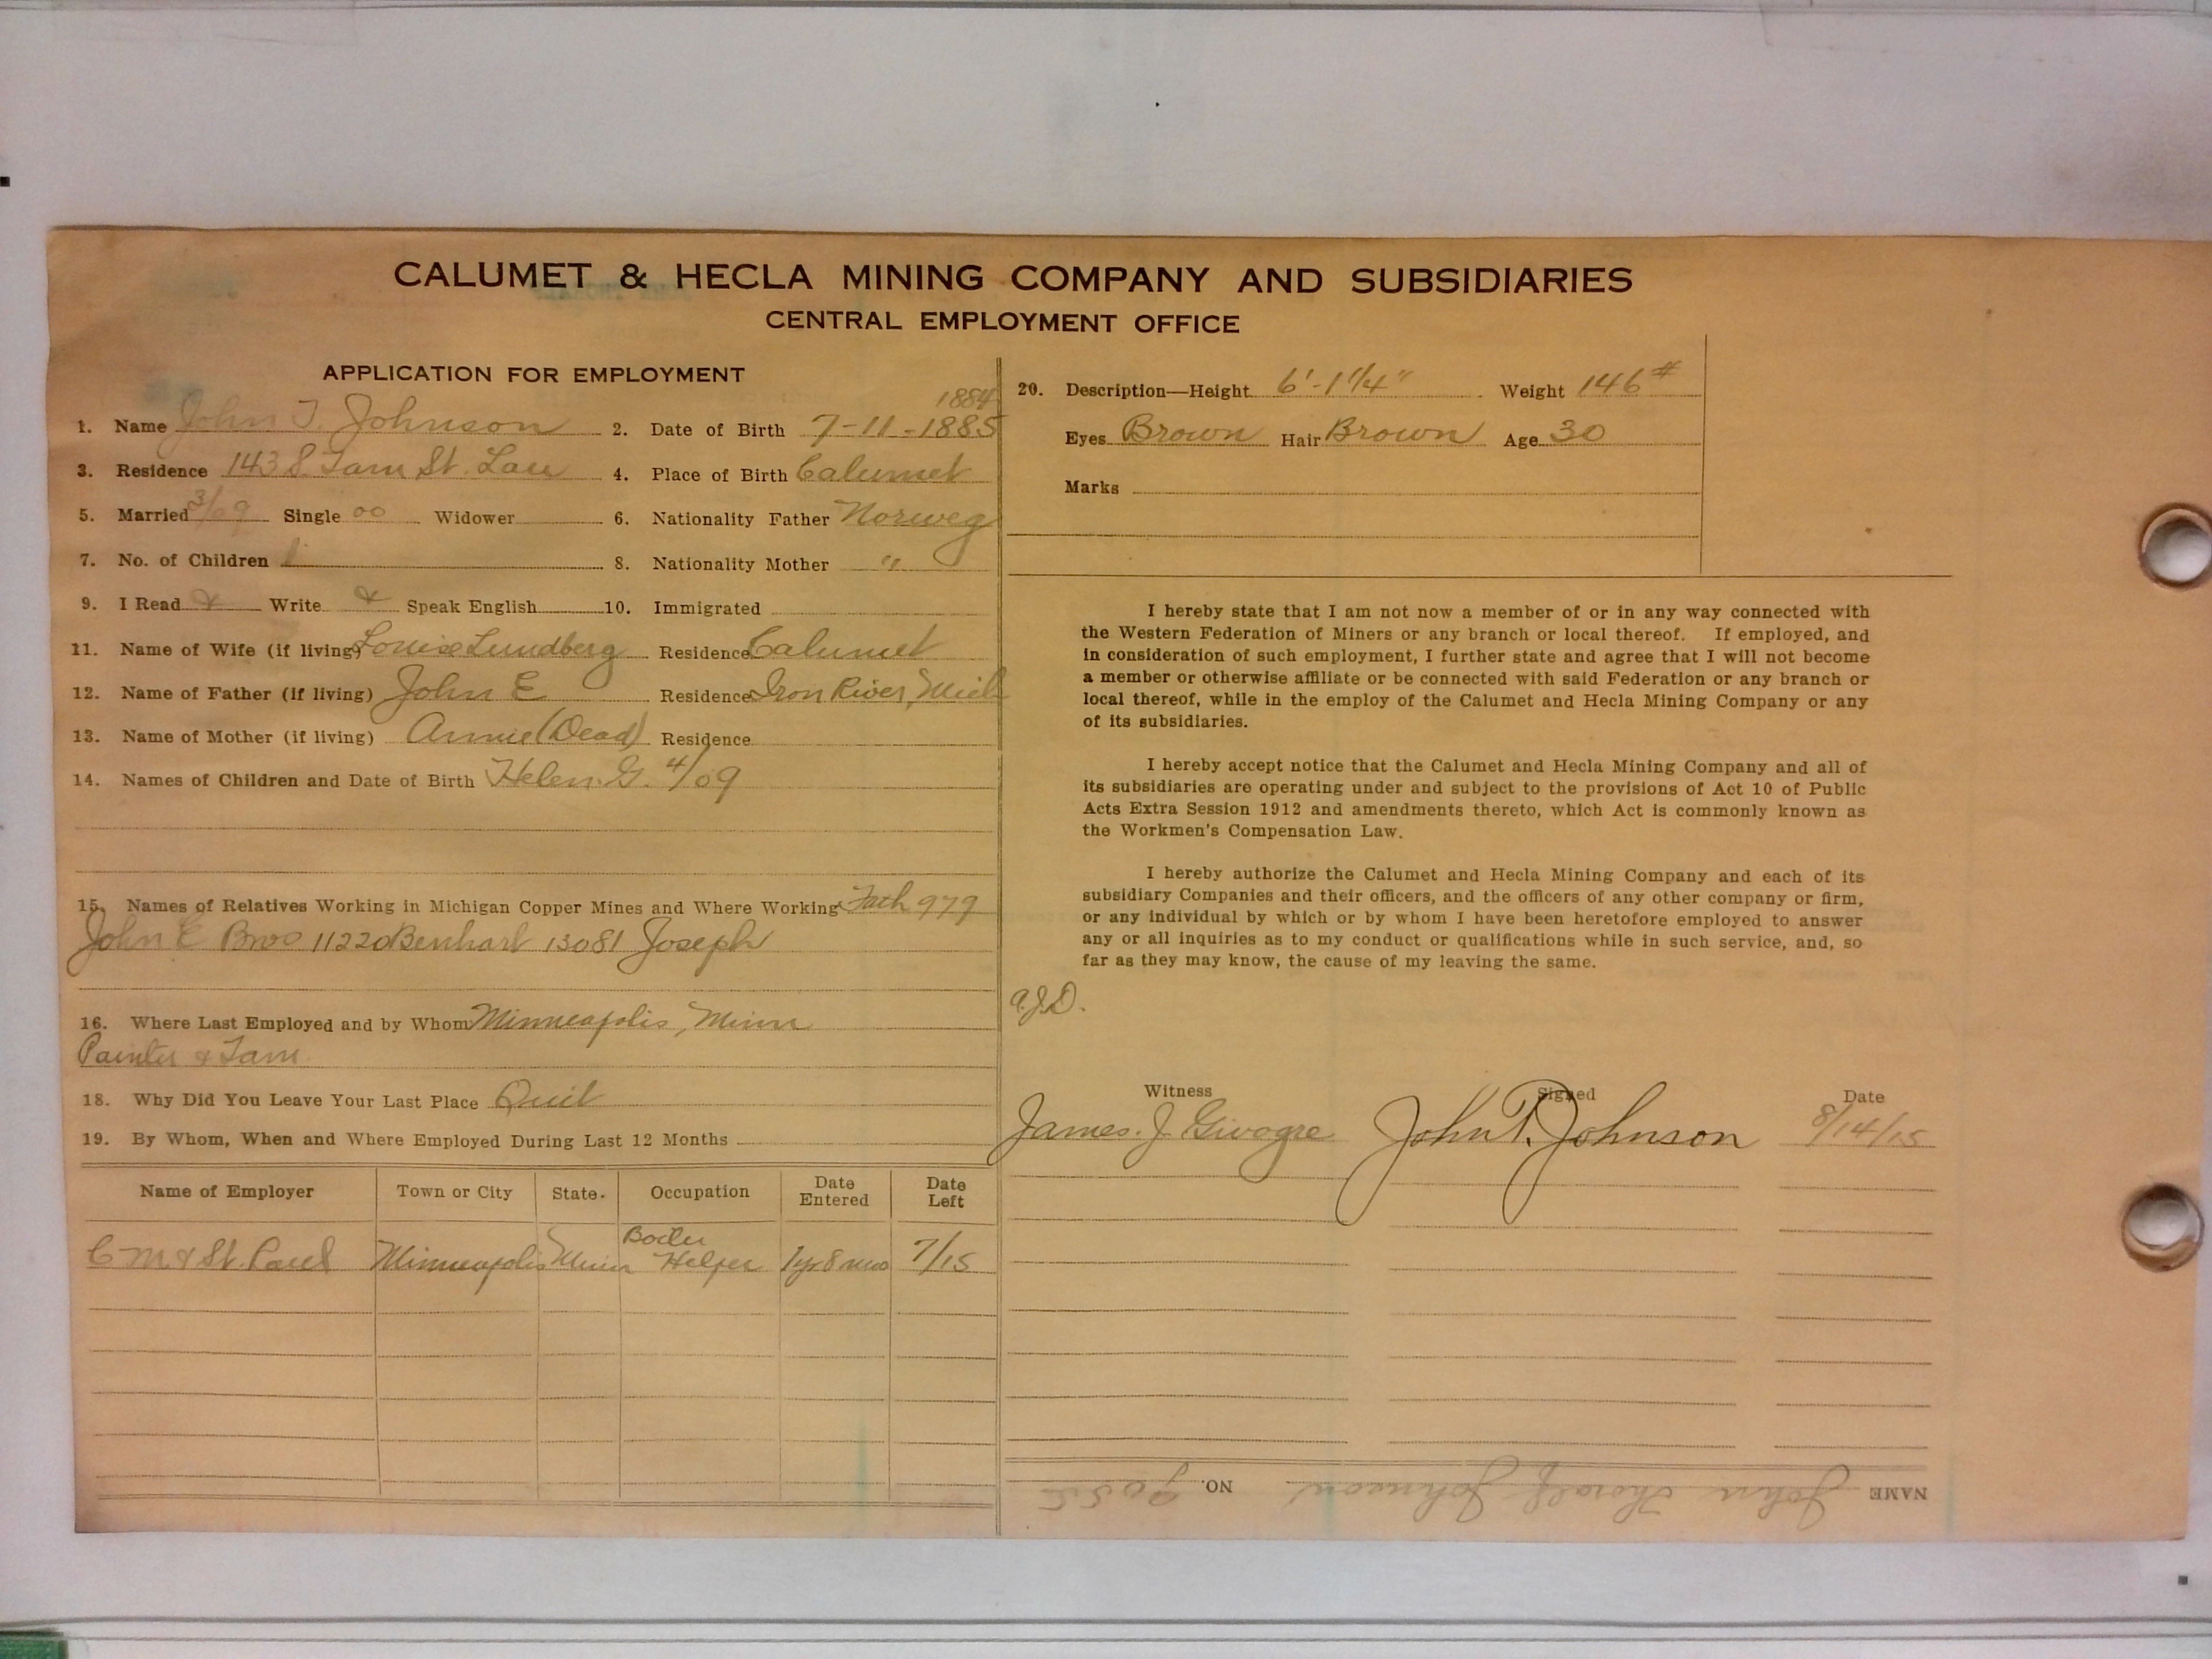 CALUMET & HECLA MINING COMPANY AND SUBSIDIARIES
CENTRAL EMPLOYMENT OFFICE
APPLICATION FOR EMPLOYMENT
1884
1. Name John T. Johnson 2. Date of Birth 7-11-1885
3. Residence 143 S. Tam St. Lau 4. Place of Birth Calumet
5. Married 3/09 Single 00 Widower 6. Nationality Father Norweg
7. No. of Children 1 8. Nationality Mother "
9. I Read & Write & Speak English 10. Immigrated
11. Name of Wife (if living) Louise Lundberg Residence Calumet
12. Name of Father (if living) John E Residence Iron River, Mich
13. Name of Mother (if living) Annie (Dead) Residence
14. Names of Children and Date of Birth Helen. G. 4/09
15. Names of Relatives Working in Michigan Copper Mines and Where Working Fath 979
John E Bros 11220 Benhart 13081 Joseph
16. Where Last Employed and by Whom Minneapolis, Minn
Painter & Tam
18. Why Did You Leave Your Last Place Quit
19. By Whom, When and Where Employed During Last 12 Months
Name of Employer Town or City State. Occupation Date Entered Date Left
C M & St. Paul Minneapolis Minn Boiler Helper 1yr 8 mo 7/15
20. Description—Height 6'-1 1/4" Weight 146#
Eyes Brown Hair Brown Age 30
Marks
I hereby state that I am not now a member of or in any way connected with
the Western Federation of Miners or any branch or local thereof. If employed, and
in consideration of such employment, I further state and agree that I will not become
a member or otherwise affiliate or be connected with said Federation or any branch or
local thereof, while in the employ of the Calumet and Hecla Mining Company or any
of its subsidiaries.
I hereby accept notice that the Calumet and Hecla Mining Company and all of
its subsidiaries are operating under and subject to the provisions of Act 10 of Public
Acts Extra Session 1912 and amendments thereto, which Act is commonly known as
the Workmen's Compensation Law.
I hereby authorize the Calumet and Hecla Mining Company and each of its
subsidiary Companies and their officers, and the officers of any other company or firm,
or any individual by which or by whom I have been heretofore employed to answer
any or all inquiries as to my conduct or qualifications while in such service, and, so
far as they may know, the cause of my leaving the same.
a.J.D.
Witness Signed Date
James. J. Givogre John T. Johnson 8/14/15
NAME John Thoralf Johnson NO.